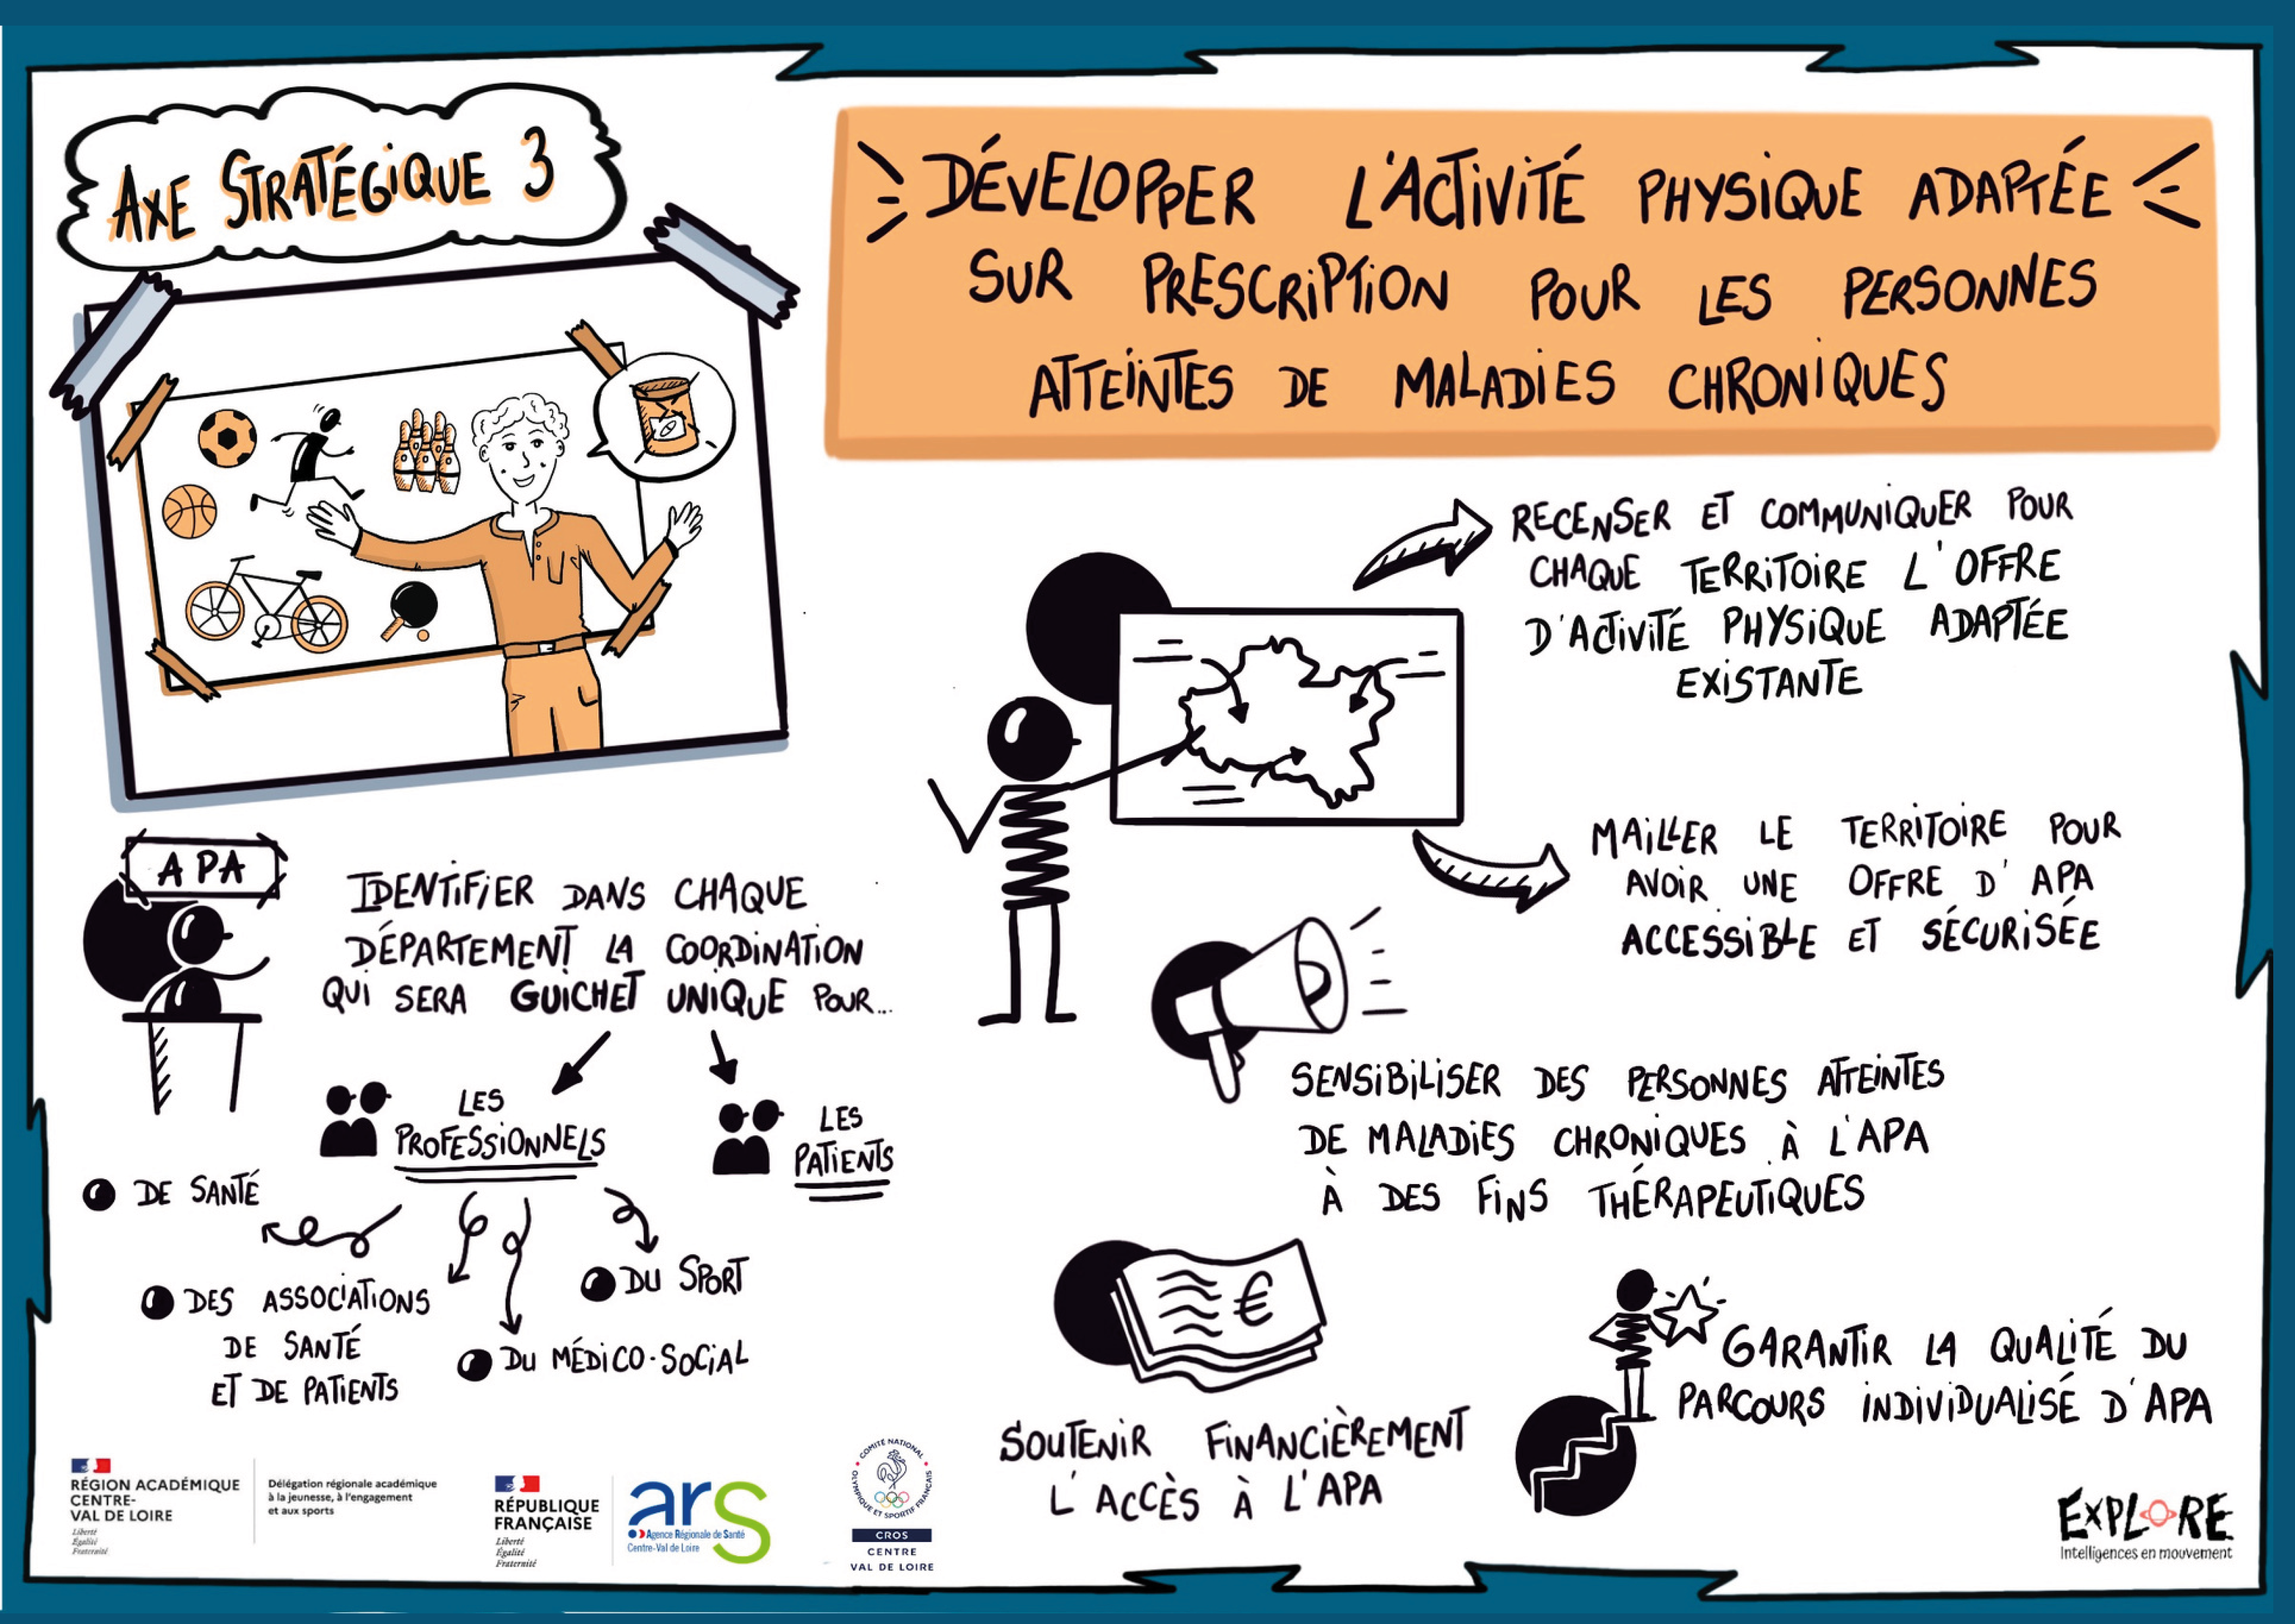 AXE STRATÉGIQUE 3
DÉVELOPPER L'ACTIVITÉ PHYSIQUE ADAPTÉE
SUR PRESCRIPTION POUR LES PERSONNES
ATTEINTES DE MALADIES CHRONIQUES
RECENSER ET COMMUNIQUER POUR
CHAQUE TERRITOIRE L'OFFRE
D'ACTIVITÉ PHYSIQUE ADAPTÉE
EXISTANTE
MAILLER LE TERRITOIRE POUR
AVOIR UNE OFFRE D'APA
ACCESSIBLE ET SÉCURISÉE
APA
IDENTIFIER DANS CHAQUE
DÉPARTEMENT LA COORDINATION
QUI SERA GUICHET UNIQUE POUR...
LES
PROFESSIONNELS
LES
PATIENTS
DE SANTÉ
DES ASSOCIATIONS
DE SANTÉ
ET DE PATIENTS
DU MÉDICO-SOCIAL
DU SPORT
SENSIBILISER DES PERSONNES ATTEINTES
DE MALADIES CHRONIQUES À L'APA
À DES FINS THÉRAPEUTIQUES
€
SOUTENIR FINANCIÈREMENT
L'ACCÈS À L'APA
GARANTIR LA QUALITÉ DU
PARCOURS INDIVIDUALISÉ D'APA
RÉGION ACADÉMIQUE
CENTRE-
VAL DE LOIRE
Liberté
Égalité
Fraternité
Délégation régionale académique
à la jeunesse, à l'engagement
et aux sports
RÉPUBLIQUE
FRANÇAISE
Liberté
Égalité
Fraternité
ars
Agence Régionale de Santé
Centre-Val de Loire
COMITÉ NATIONAL OLYMPIQUE ET SPORTIF FRANÇAIS
CROS
CENTRE
VAL DE LOIRE
EXPLORE
Intelligences en mouvement